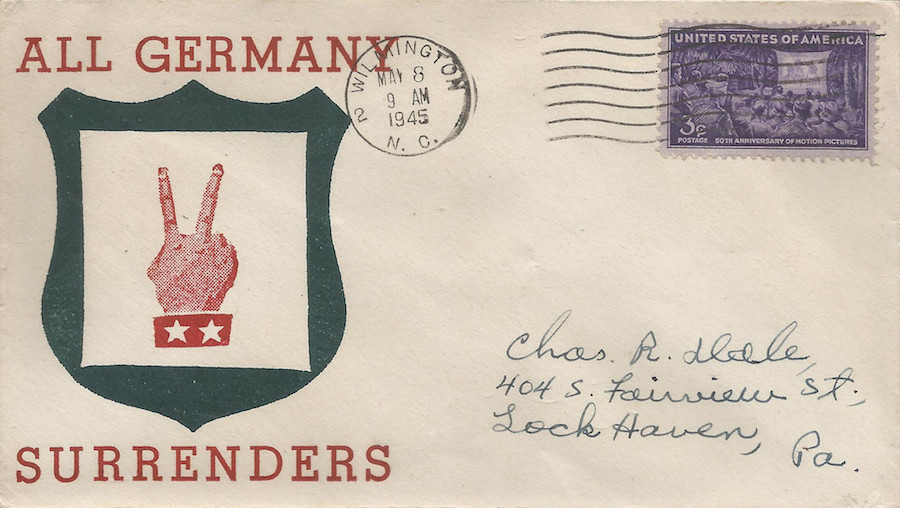 ALL GERMANY
SURRENDERS
2 WILMINGTON
MAY 8
9 AM
1945
N. C.
UNITED STATES OF AMERICA
3¢
POSTAGE 50TH ANNIVERSARY OF MOTION PICTURES
Chas. R. Dale,
404 S. Fairview St.,
Lock Haven,
Pa.